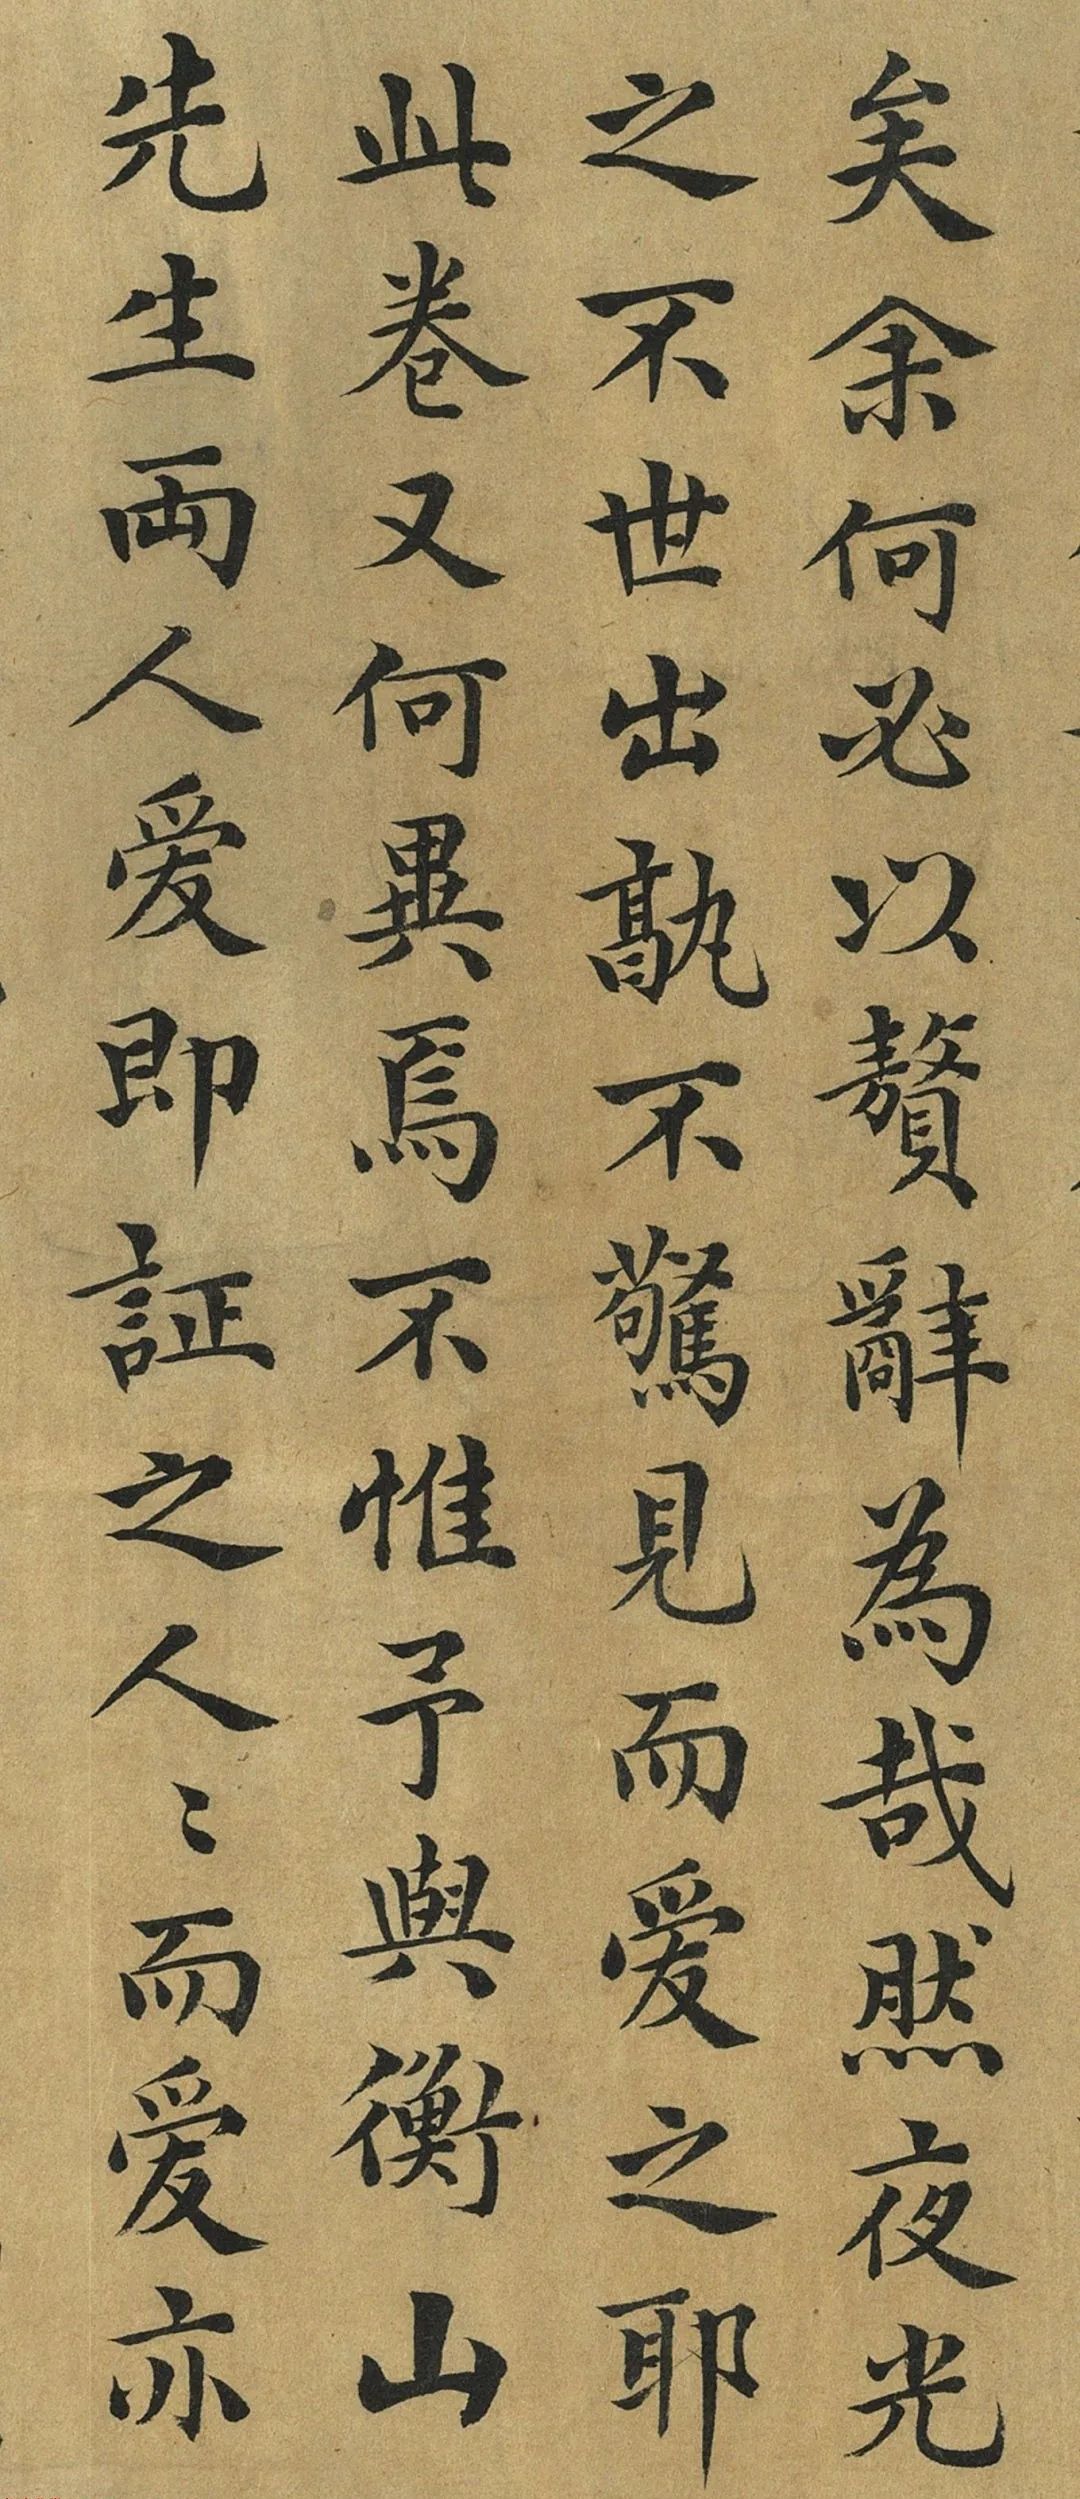 矣余何必以贅辭為哉然夜光
之不世出孰不驚見而爱之耶
此卷又何異焉不惟予與衡山
先生両人爱即証之人〻而爱亦